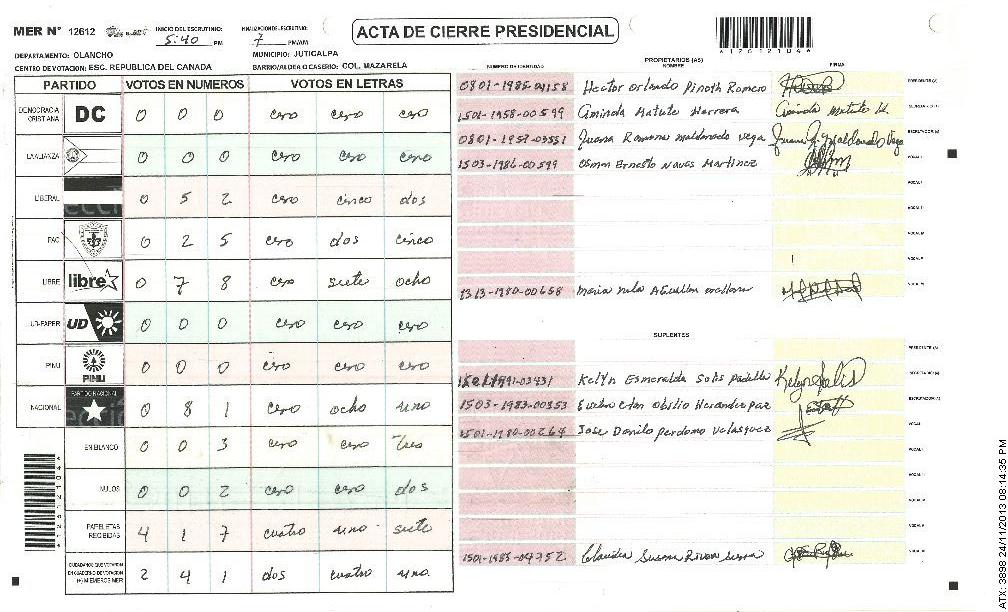 MER Nº 12612
INICIO DEL ESCRUTINIO: 5:40 PM
FINALIZACION DE ESCRUTINIO: 7 PM/AM
ACTA DE CIERRE PRESIDENCIAL
DEPARTAMENTO: OLANCHO
MUNICIPIO: JUTICALPA
CENTRO DE VOTACION: ESC. REPUBLICA DEL CANADA
BARRIO/ALDEA O CASERIO: COL. MAZARELA
PARTIDO VOTOS EN NUMEROS VOTOS EN LETRAS
DEMOCRACIA CRISTIANA DC 0 0 0 cero cero cero
LA ALIANZA 0 0 0 cero cero cero
LIBERAL 0 5 2 cero cinco dos
PAC 0 2 5 cero dos cinco
LIBRE libre 0 7 8 cero siete ocho
UD-FAPER UD 0 0 0 cero cero cero
PINU PINU 0 0 0 cero cero cero
NACIONAL PARTIDO NACIONAL 0 8 1 cero ocho uno
EN BLANCO 0 0 3 cero cero Tres
NULOS 0 0 2 cero cero dos
PAPELETAS RECIBIDAS 4 1 7 cuatro uno siete
CIUDADANOS QUE VOTARON EN CUADERNO DE VOTACION (+) MIEMBROS MER 2 4 1 dos cuatro uno
PROPIETARIOS (AS)
NUMERO DE IDENTIDAD NOMBRE FIRMA
Hector Orlando Pinoth Romero PRESIDENTE (A)
1501-1958-00599 Aminda Matute Herrera Aminda Matute H. SECRETARIO (A)
0801-1957-03551 Juana Ramona maldonado vega ESCRUTADOR (A)
1503-1986-00599 Osman Ernesto Navas Martinez VOCAL I
1313-1980-00658 Maria
SUPLENTES
PRESIDENTE (A)
Kelyn Esmeralda Solis Padilla Kelyn Solis SECRETARIO (A)
1503-1983-00353 Obilio Hernandez paz ESCRUTADOR (A)
1501-1980-00264 Jose Danilo perdomo Velasquez VOCAL I
Claudia Susana
ATX: 3898 24/11/2013 08:14:35 PM